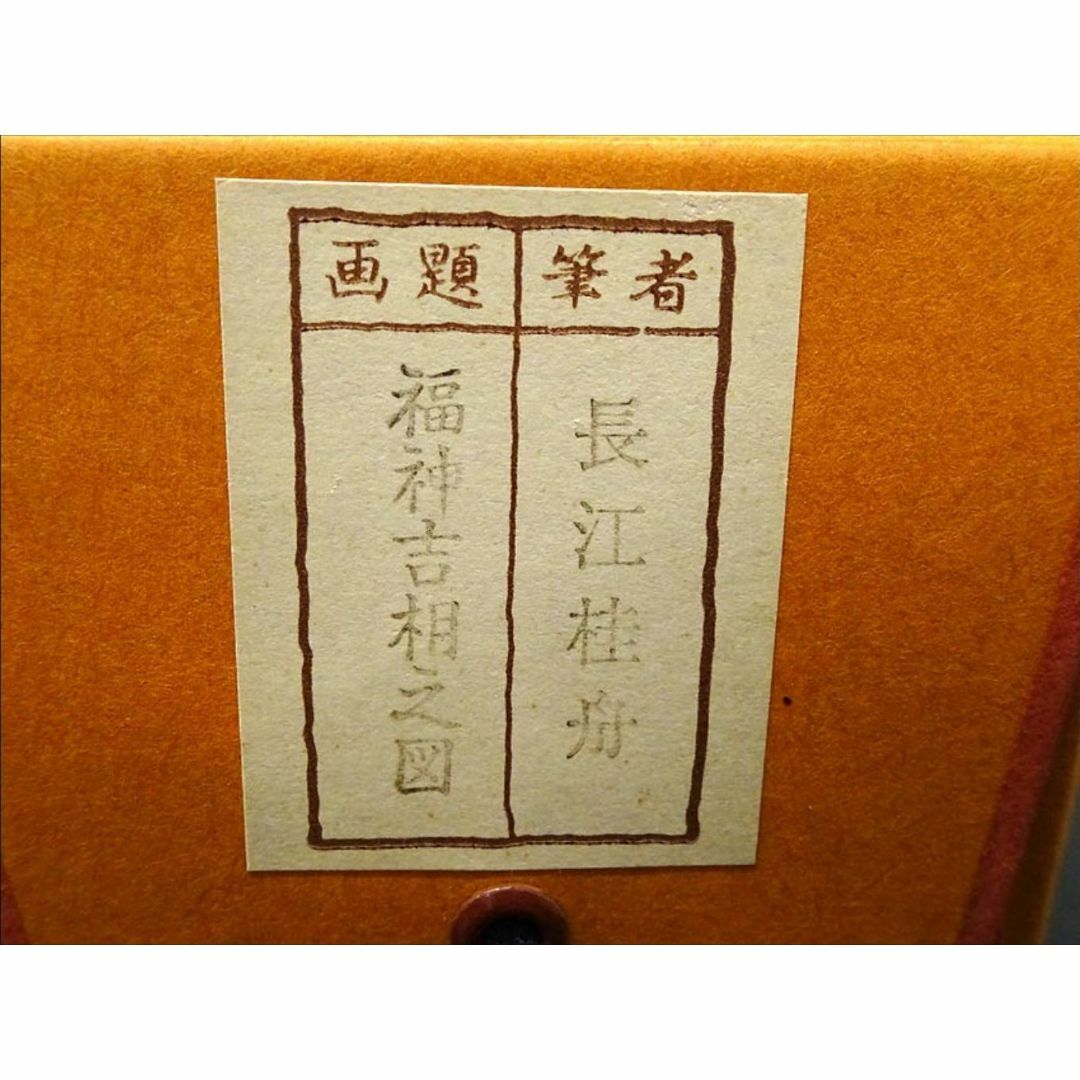 筆者
長江桂舟
画題
福神吉相之図